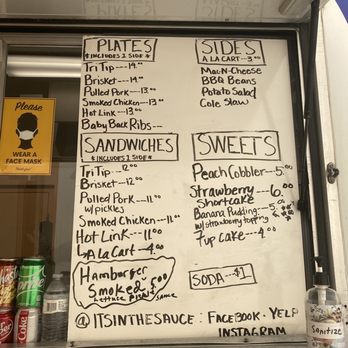 PLATES
*INCLUDES 1 SIDE*
Tri Tip---14.00
Brisket---14.00
Pulled Pork---13.00
Smoked Chicken--13.00
Hot Link---13.00
Baby Back Ribs---
SIDES
A LA CART--3.00
Mac-N-Cheese
BBQ Beans
Potato Salad
Cole Slaw
SANDWICHES
*INCLUDES 1 SIDE*
Tri Tip---12.00
Brisket--12.00
Pulled Pork--11.00
w/ pickles
Smoked Chicken--11.00
Hot Link---11.00
A La Cart---4.00
Hamburger
Smoked
5.00
Lettuce
sauce
SWEETS
Peach Cobbler--5.00
Strawberry---6.00
Shortcake
Banana Pudding--5.00
w/ strawberry topping
7up Cake---4.00
SODA--$1
@ITSINTHESAUCE: FACEBOOK. YELP
INSTAGRAM
Please
WEAR A
FACE MASK
Coke
Sanitize